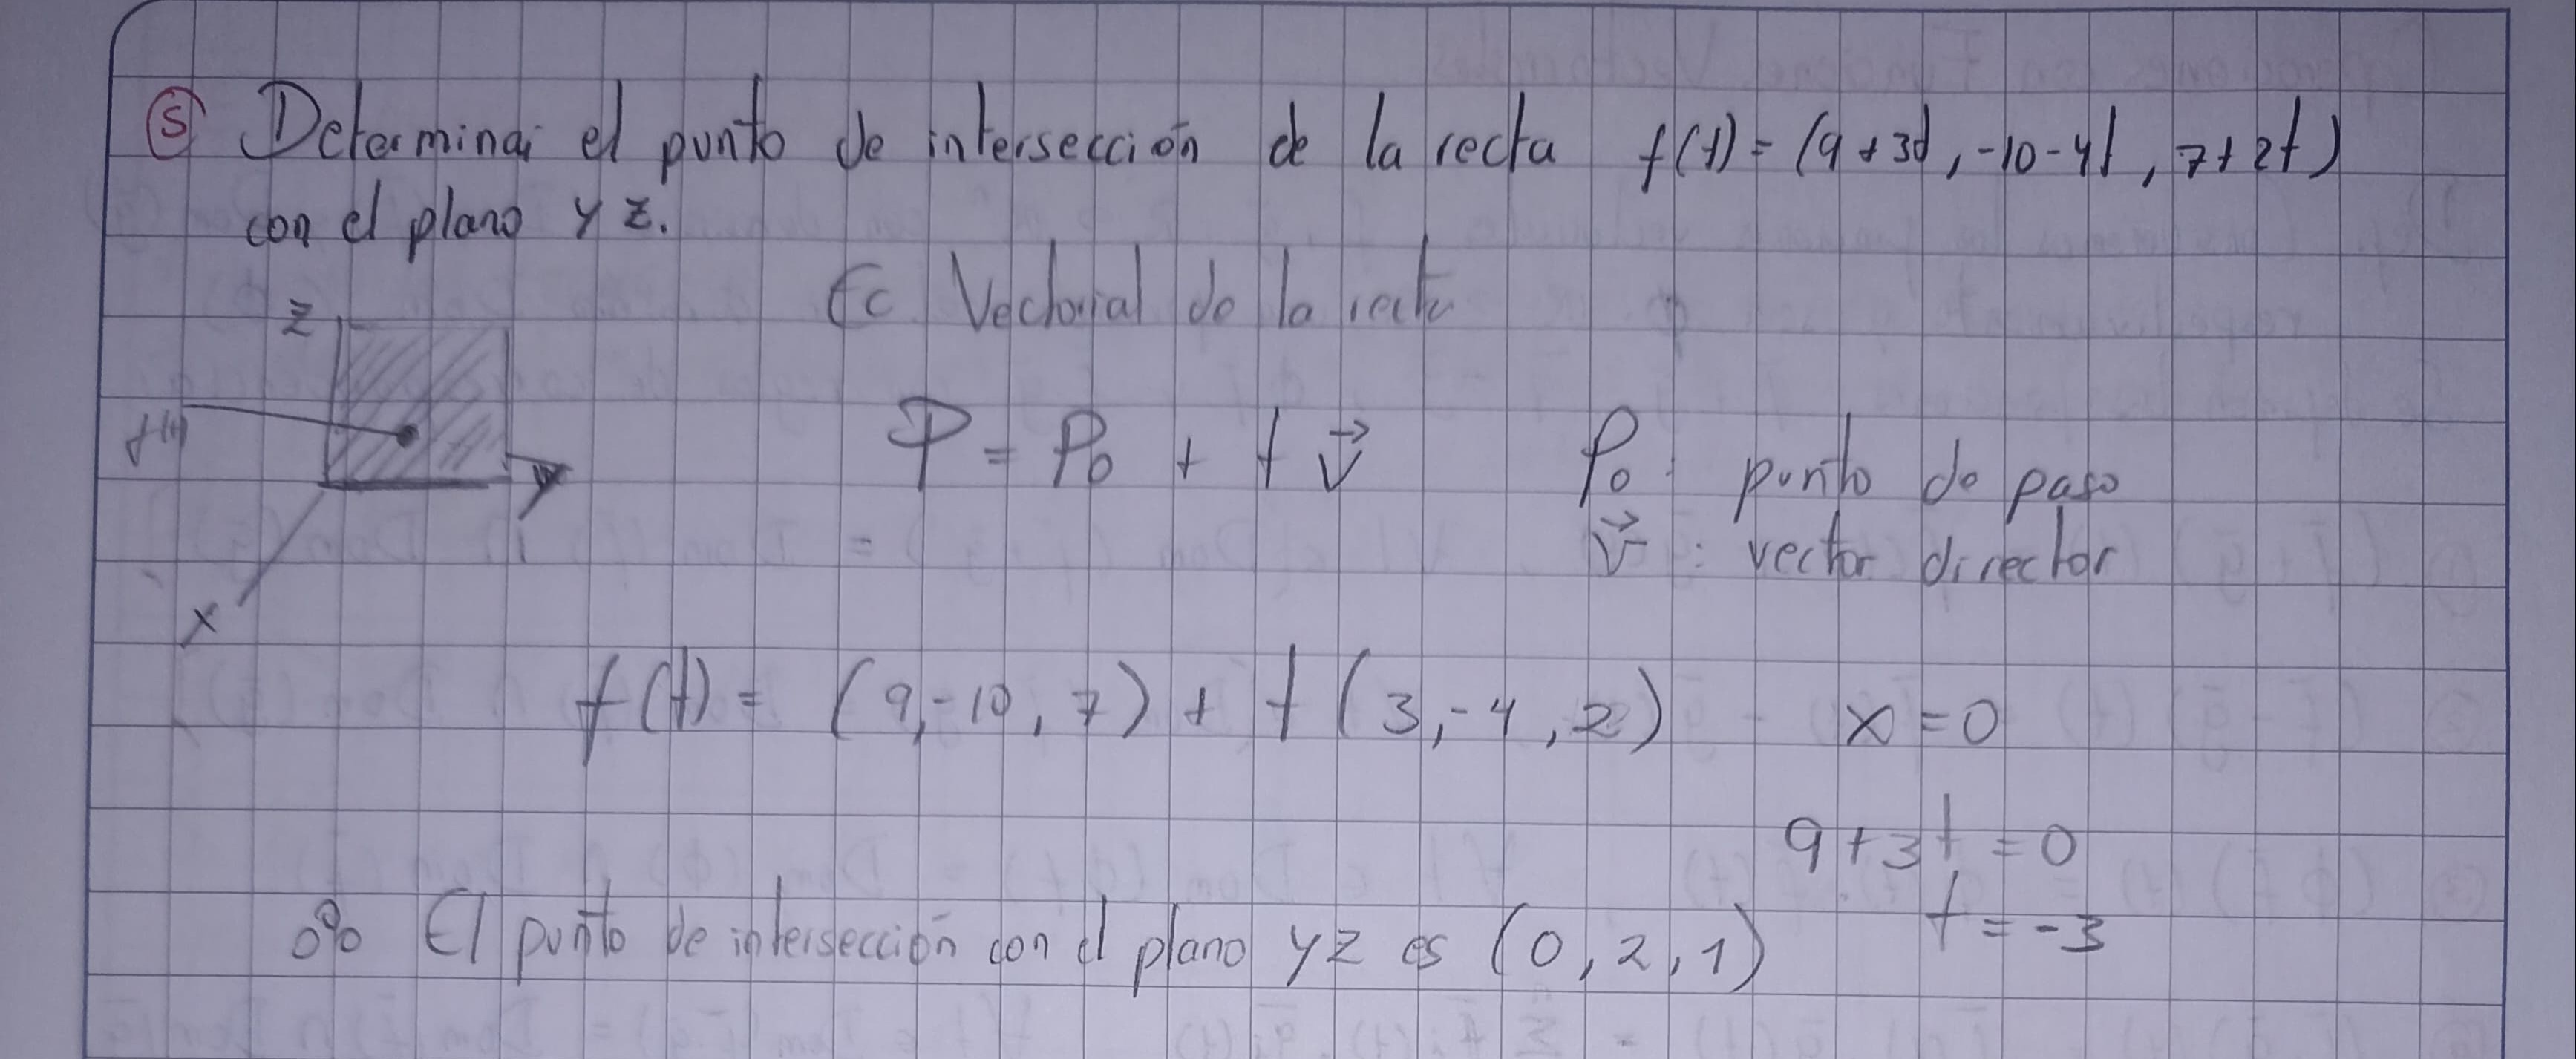 ⑤ Determinar el punto de intersección de la recta f(t) = (9+3t, -10-4t, 7+2t)
con el plano yz.
Ec Vectorial de la recta
z
f(t)
y
x
P = P₀ + t v⃗
P₀: punto de paso
v⃗: vector director
f(t) = (9,-10,7) + t(3,-4,2) x=0
9+3t=0
t=-3
∴ El punto de intersección con el plano yz es (0,2,1)